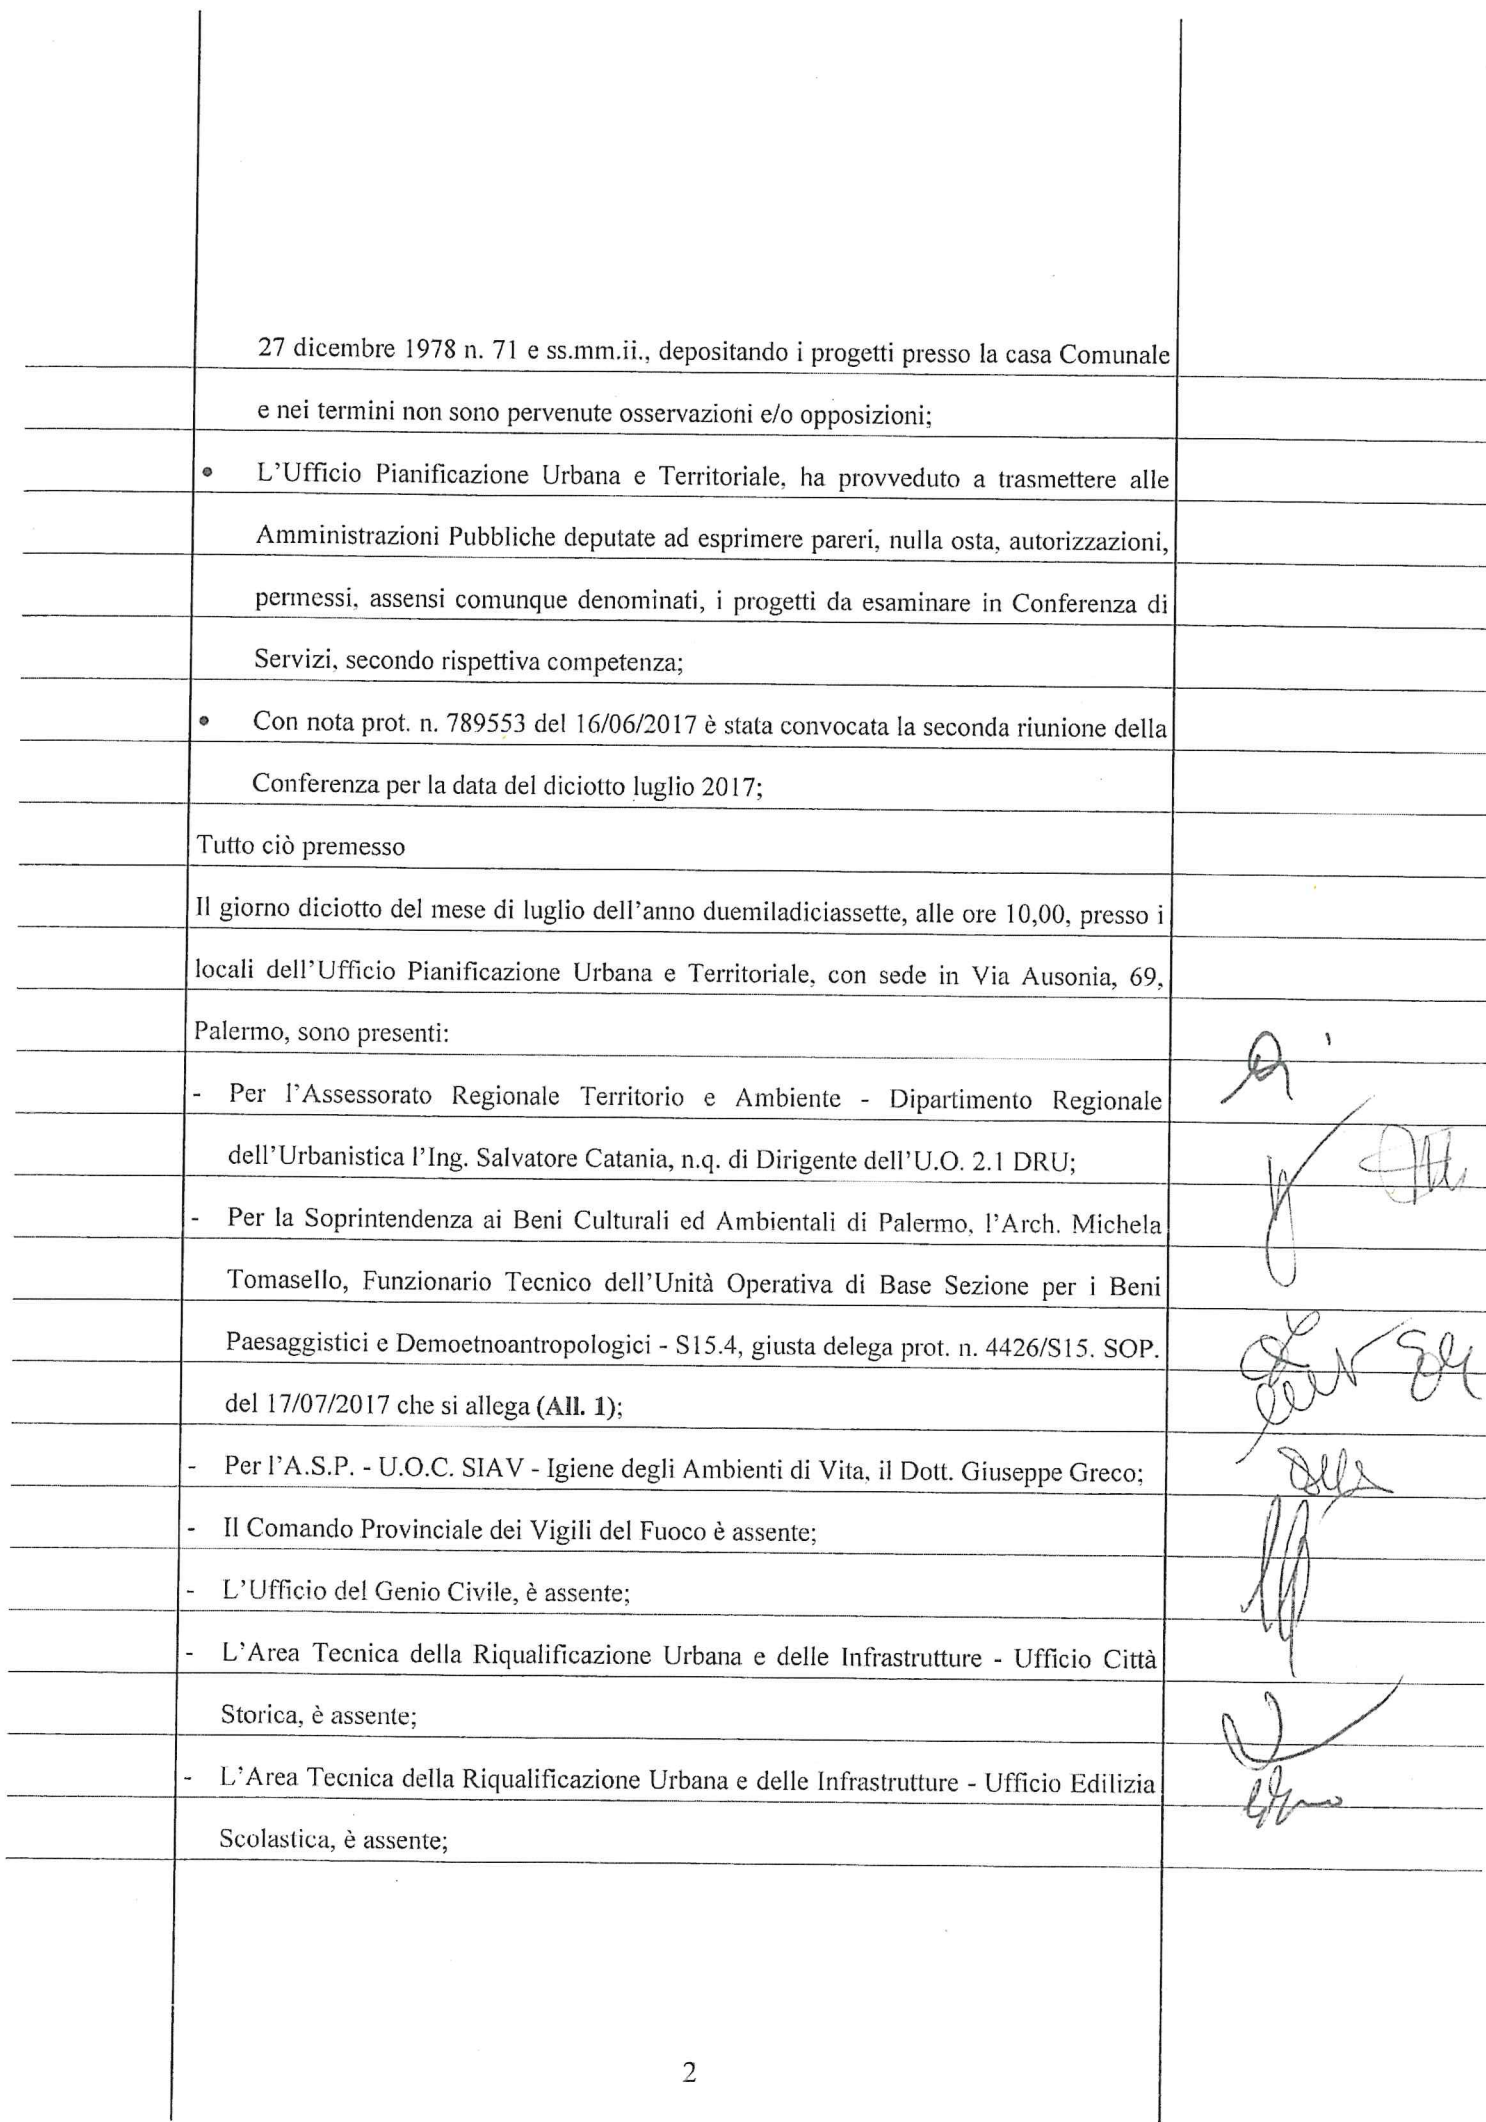 27 dicembre 1978 n. 71 e ss.mm.ii., depositando i progetti presso la casa Comunale
e nei termini non sono pervenute osservazioni e/o opposizioni;
• L'Ufficio Pianificazione Urbana e Territoriale, ha provveduto a trasmettere alle
Amministrazioni Pubbliche deputate ad esprimere pareri, nulla osta, autorizzazioni,
permessi, assensi comunque denominati, i progetti da esaminare in Conferenza di
Servizi, secondo rispettiva competenza;
• Con nota prot. n. 789553 del 16/06/2017 è stata convocata la seconda riunione della
Conferenza per la data del diciotto luglio 2017;
Tutto ciò premesso
Il giorno diciotto del mese di luglio dell'anno duemiladiciassette, alle ore 10,00, presso i
locali dell'Ufficio Pianificazione Urbana e Territoriale, con sede in Via Ausonia, 69,
Palermo, sono presenti:
- Per l'Assessorato Regionale Territorio e Ambiente - Dipartimento Regionale
dell'Urbanistica l'Ing. Salvatore Catania, n.q. di Dirigente dell'U.O. 2.1 DRU;
- Per la Soprintendenza ai Beni Culturali ed Ambientali di Palermo, l'Arch. Michela
Tomasello, Funzionario Tecnico dell'Unità Operativa di Base Sezione per i Beni
Paesaggistici e Demoetnoantropologici - S15.4, giusta delega prot. n. 4426/S15. SOP.
del 17/07/2017 che si allega (All. 1);
- Per l'A.S.P. - U.O.C. SIAV - Igiene degli Ambienti di Vita, il Dott. Giuseppe Greco;
- Il Comando Provinciale dei Vigili del Fuoco è assente;
- L'Ufficio del Genio Civile, è assente;
- L'Area Tecnica della Riqualificazione Urbana e delle Infrastrutture - Ufficio Città
Storica, è assente;
- L'Area Tecnica della Riqualificazione Urbana e delle Infrastrutture - Ufficio Edilizia
Scolastica, è assente;
2